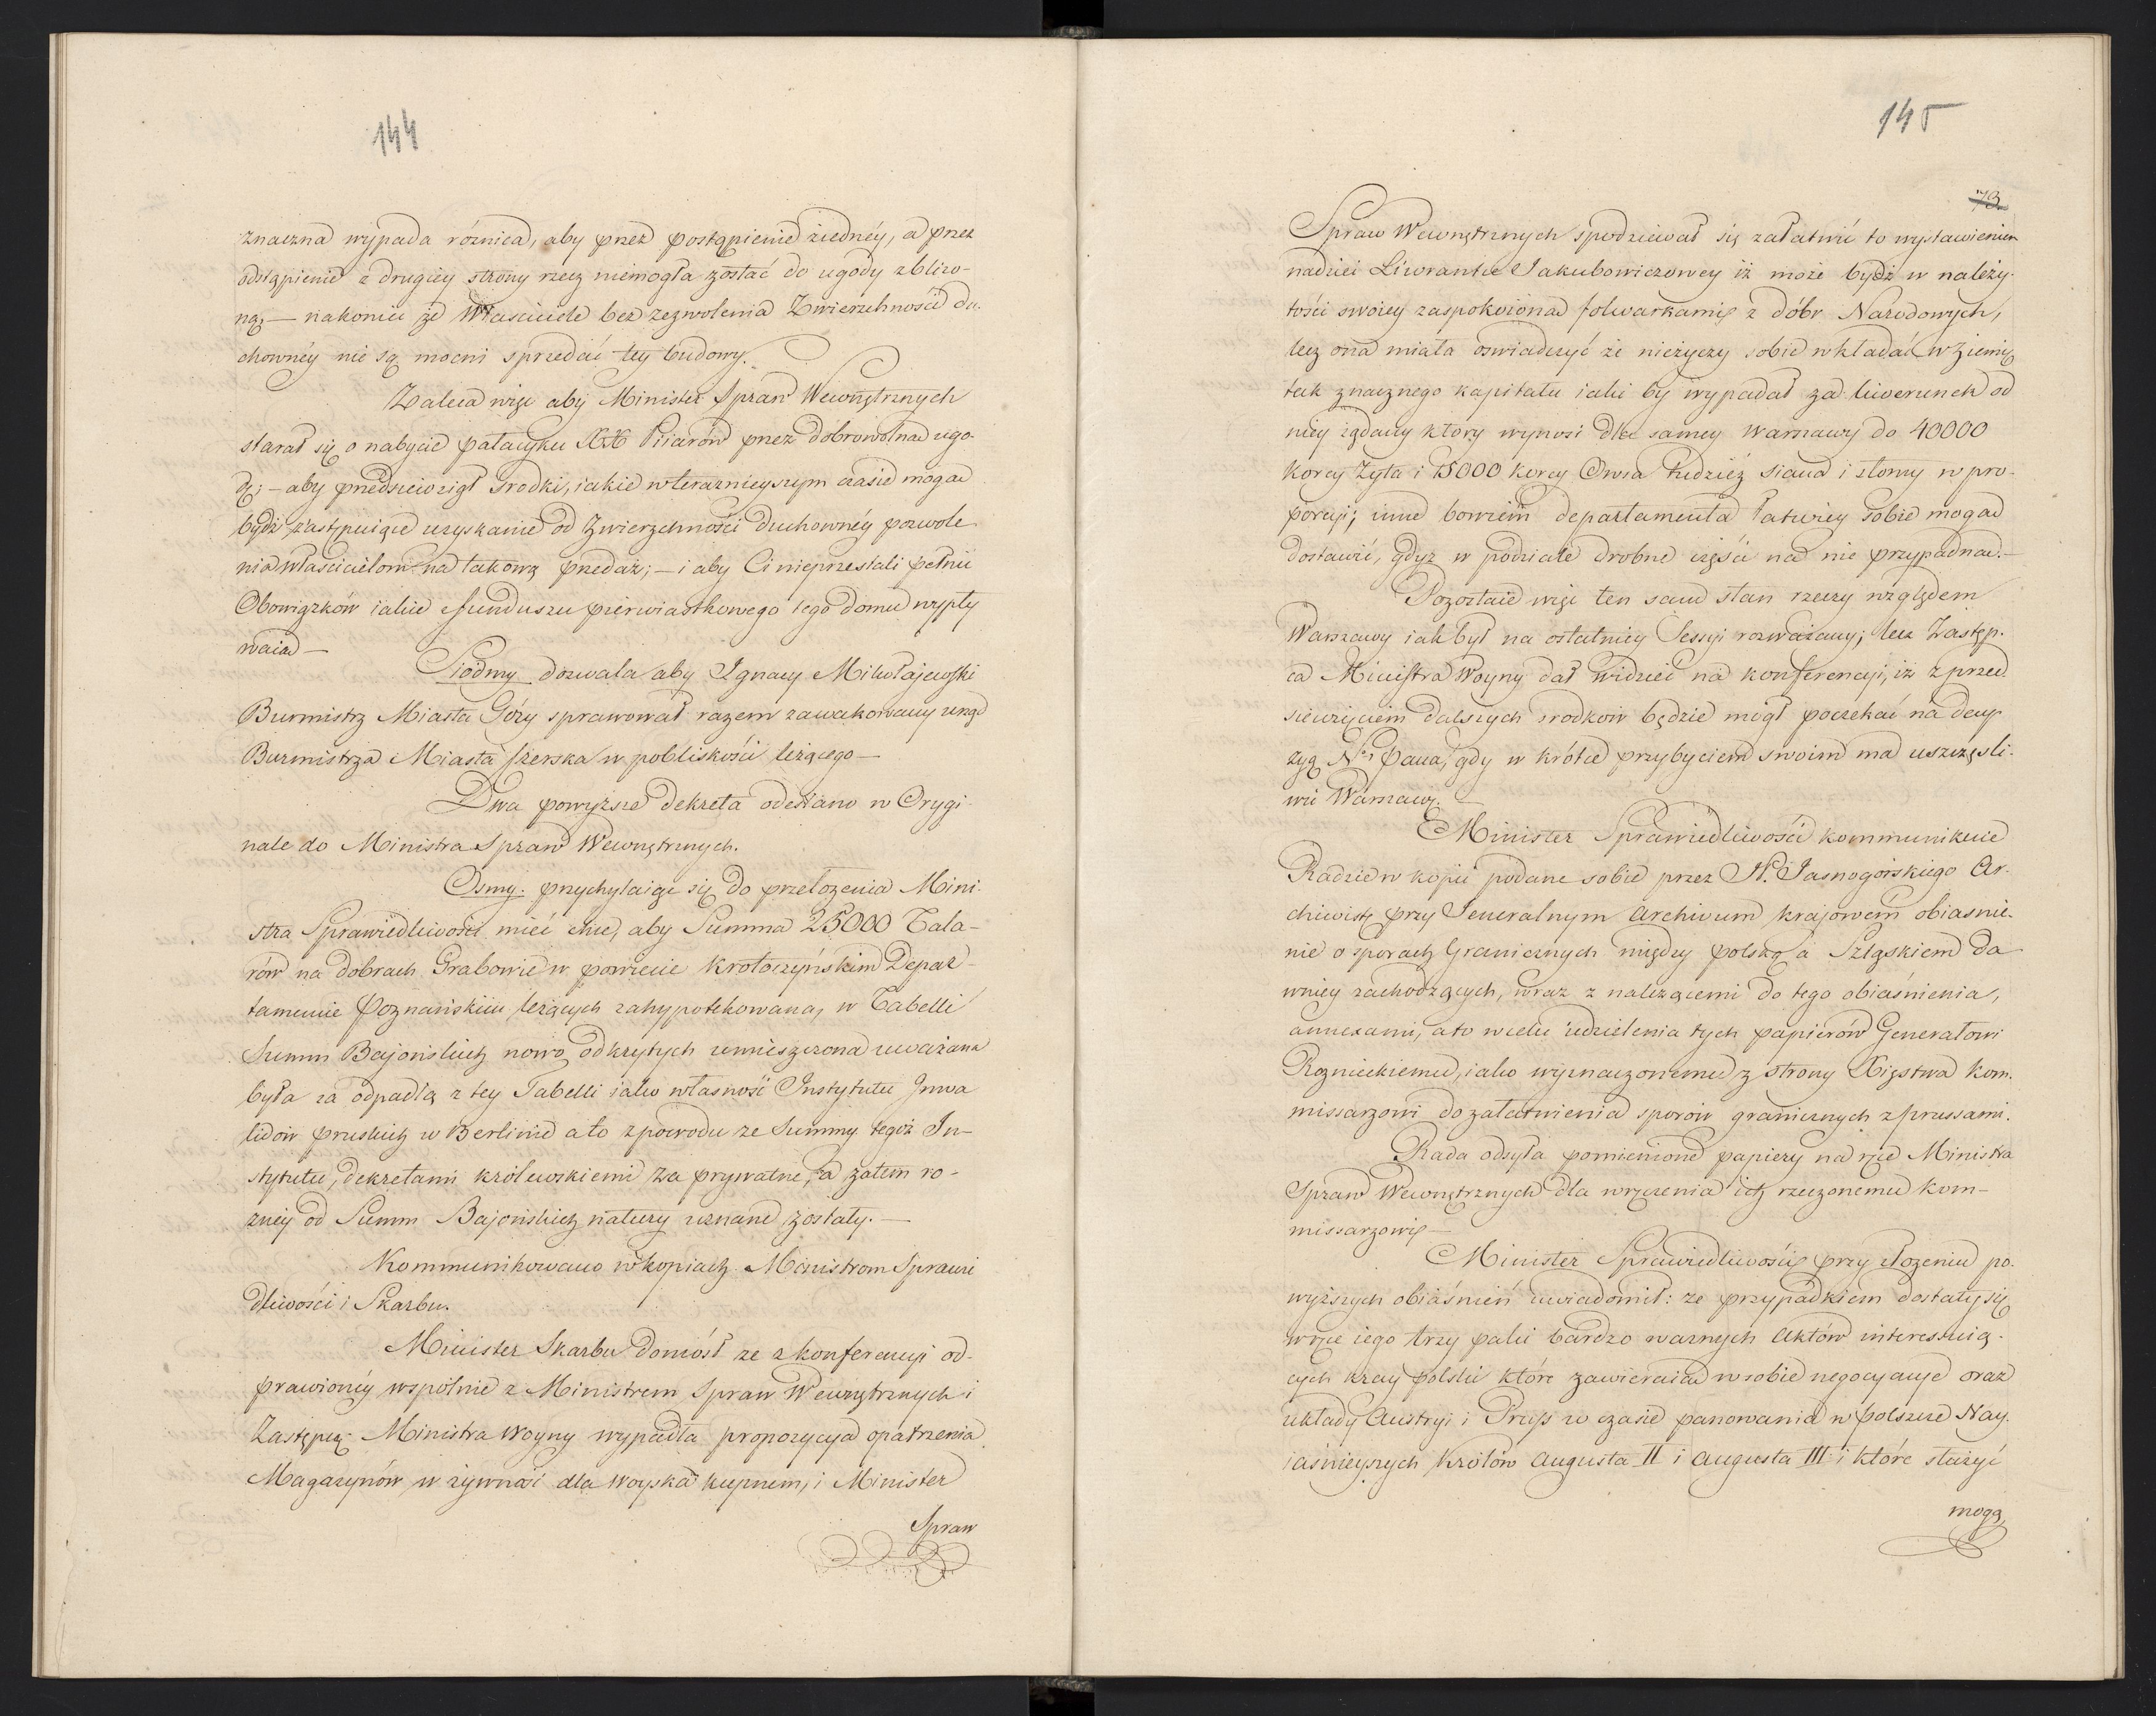 144
znaczna wypada róznica, aby przez postąpienie iedney, a przez
odstąpienie z drugiey strony rzecz niemogła zostać do ugody zbliżo-
ną; — nakoniec że Właściciele bez zezwolenia Zwierzchności du-
chowney nie są mocni sprzedać tey budowy.
Zaleca więc aby Minister Spraw Wewnętrznych
starał się o nabycie pałacyku XX Piiarów przez dobrowolną ugo-
dę; — aby przedsiewziął srodki, iakie w terazniejszym czasie mogą
bydź zastępuiące uzyskanie od Zwierzchności duchowney pozwole
nia właścicielom na takową przedaż; — i aby Ci nieprzestali pełnić
Obowiązków iakie z funduszu pierwiastkowego tego domu wypły
waią —
Siódmy dozwala aby Ignacy Mikołajewski
Burmistrz Miasta Góry sprawował razem zawakowany urząd
Burmistrza Miasta Czerska w pobliskości leżącego —
Dwa powyższe dekreta odesłano w Orygi-
nale do Ministra Spraw Wewnętrznych.
Osmy. przychylaiąc się do przełożenia Mini-
stra Sprawiedliwości mieć chce, aby Summa 25000 Tala-
rów na dobrach Grabowie w powiecie Krotoczyńskim Depar-
tamencie Poznańskim leżących zahypotekowana, w Tabelli
Summ Bajońskich nowo odkrytych umieszczona uważana
była za odpadłą z tey Tabelli iako własność Instytutu Inwa
lidów pruskich w Berlinie a to z powodu ze Summy tegoż In-
stytutu, dekretami królewskiemi za prywatne, a zatem ro-
zney od Summ Bajońskich natury uznane zostały. —
Kommunikowano w kopiach Ministrom Sprawie
dliwości i Skarbu.
Minister Skarbu doniósł ze z konferencyi od-
prawioney wspólnie z Ministrem Spraw Wewnętrznych i
Zastępcą Ministra Woyny wypadła propozycya opatrzenia
Magazynów w żywność dla Woyska kupnem, i Minister
Spraw
145
73
Spraw Wewnętrznych spodziewał się załatwić to wystawieniem
nadziei Liwrantce Jakubowiczowey iż może bydź w należy-
tości swoiey zaspokoioną folwarkami z dóbr Narodowych,
lecz ona miała oswiadczyć że nieżyczy sobie wkładać w ziemię
tak znacznego kapitału iaki by wypadał za liwerunek od
niey żądany który wynosi dla samey Warszawy do 40000
Korcy Żyta i 15000 korcy Owsa tudzież siana i słomy w pro-
porcyi; inne bowiem departamenta łatwiey sobie mogą
dostawić, gdyż w podziale drobne części na nie przypadną. —
Pozostaie więc ten sam stan rzeczy względem
Warszawy iak był na ostatniey Sessyi rozważany; lecz Zastęp-
ca Ministra Woyny dał widzieć na konferencyi, iż z przed
siewzięciem dalszych srodków będzie mógł poczekać na decy-
zyą Nyo Pana, gdy w krótce przybyciem swoim ma uszczęśli-
wić Warszawę. —
Minister Sprawiedliwości kommunikuie
Radzie w kopii podane sobie przez JP. Jasnogórskiego Ar-
chiwistę przy Jeneralnym Archivum krajowem obiasnie-
nie o sporach Granicznych między Polską a Szląskiem da
wniey zachodzących, wraz z należącemi do tego obiaśnienia,
annexami, a to w celu udzielenia tych papierów Generałowi
Roznieckiemu, iako wyznaczonemu z strony Xięstwa Kom-
missarzowi do załatwienia sporów granicznych z prussami.
Rada odsyła pomienione papiery na ręce Ministra
Spraw Wewnętrznych dla wręczenia ich rzeczonemu Kom-
missarzowi —
Minister Sprawiedliwości przy złożeniu po-
wyższych obiaśnień uwiadomił: ze przypadkiem dostały się
w ręce iego trzy paki bardzo ważnych Aktów interessuią-
cych kray polski które zawieraią w sobie negocyacye oraz
układy Austryi i Pruss w czasie panowania w Polszcze Nay-
iaśnieyszych Królów Augusta II i Augusta III i które służyć
mogą